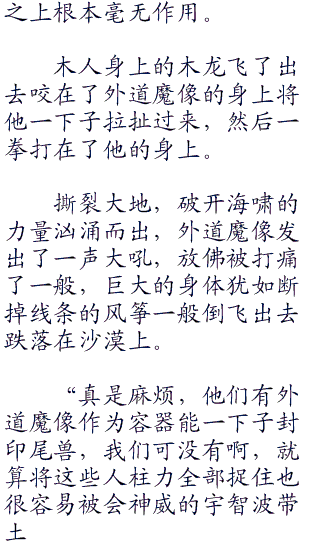 之上根本毫无作用。
木人身上的木龙飞了出
去咬在了外道魔像的身上将
他一下子拉扯过来，然后一
拳打在了他的身上。
撕裂大地，破开海啸的
力量汹涌而出，外道魔像发
出了一声大吼，放佛被打痛
了一般，巨大的身体犹如断
掉线条的风筝一般倒飞出去
跌落在沙漠上。
“真是麻烦，他们有外
道魔像作为容器能一下子封
印尾兽，我们可没有啊，就
算将这些人柱力全部捉住也
很容易被会神威的宇智波带
土